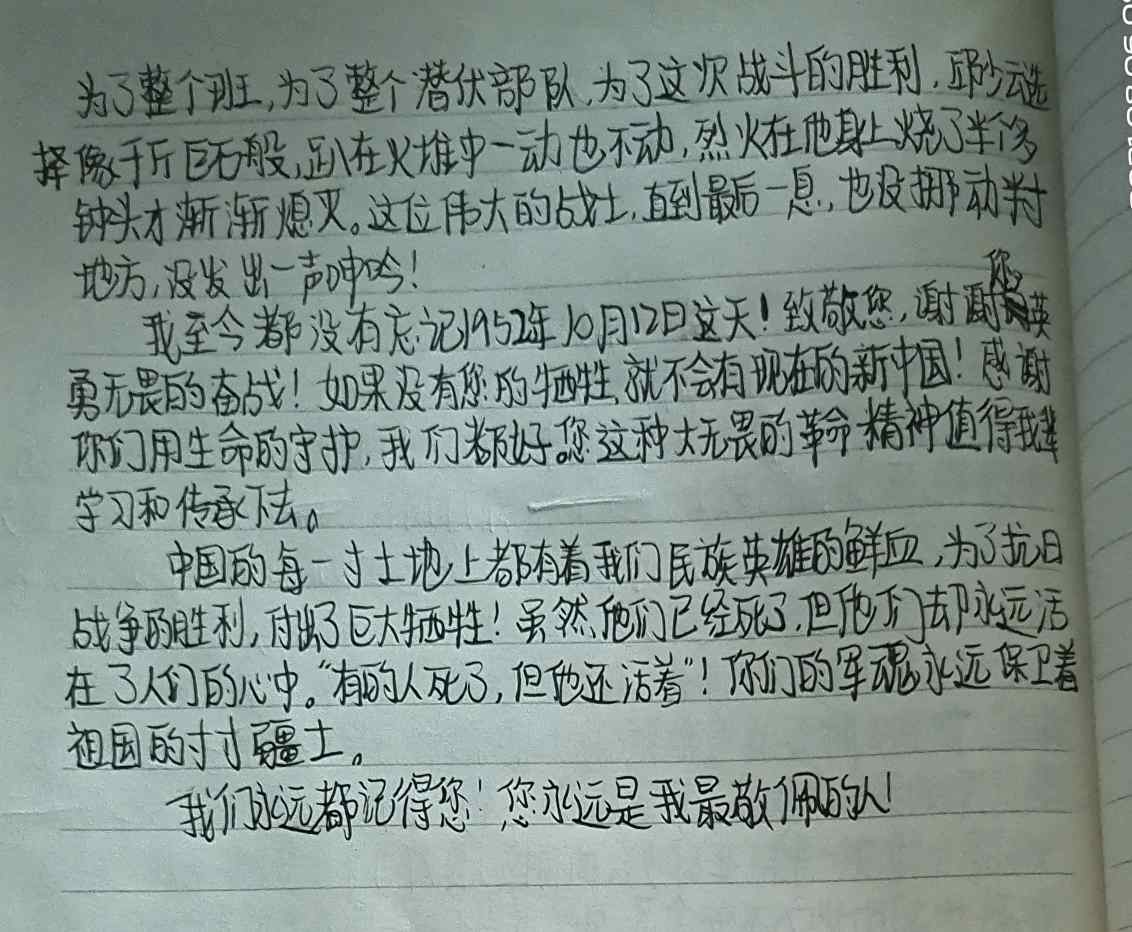 为了整个班,为了整个潜伏部队,为了这次战斗的胜利,邱少云选
择像千斤巨石般,趴在火堆中一动也不动,烈火在他身上烧了半个多
钟头才渐渐熄灭。这位伟大的战士,直到最后一息,也没挪动半寸
地方,没发出一声呻吟!
我至今都没有忘记1952年10月12日这天!致敬您,谢谢您英
勇无畏的奋战!如果没有您的牺牲,就不会有现在的新中国!感谢
你们用生命的守护,我们都好。您这种大无畏的革命精神值得我辈
学习和传承下去。
中国的每一寸土地上都有着我们民族英雄的鲜血,为了抗日
战争的胜利,付出了巨大牺牲!虽然他们已经死了,但他们却永远活
在了人们的心中。“有的人死了,但他还活着”!你们的军魂永远保卫着
祖国的寸寸疆土。
我们永远都记得您!您永远是我最敬佩的人!